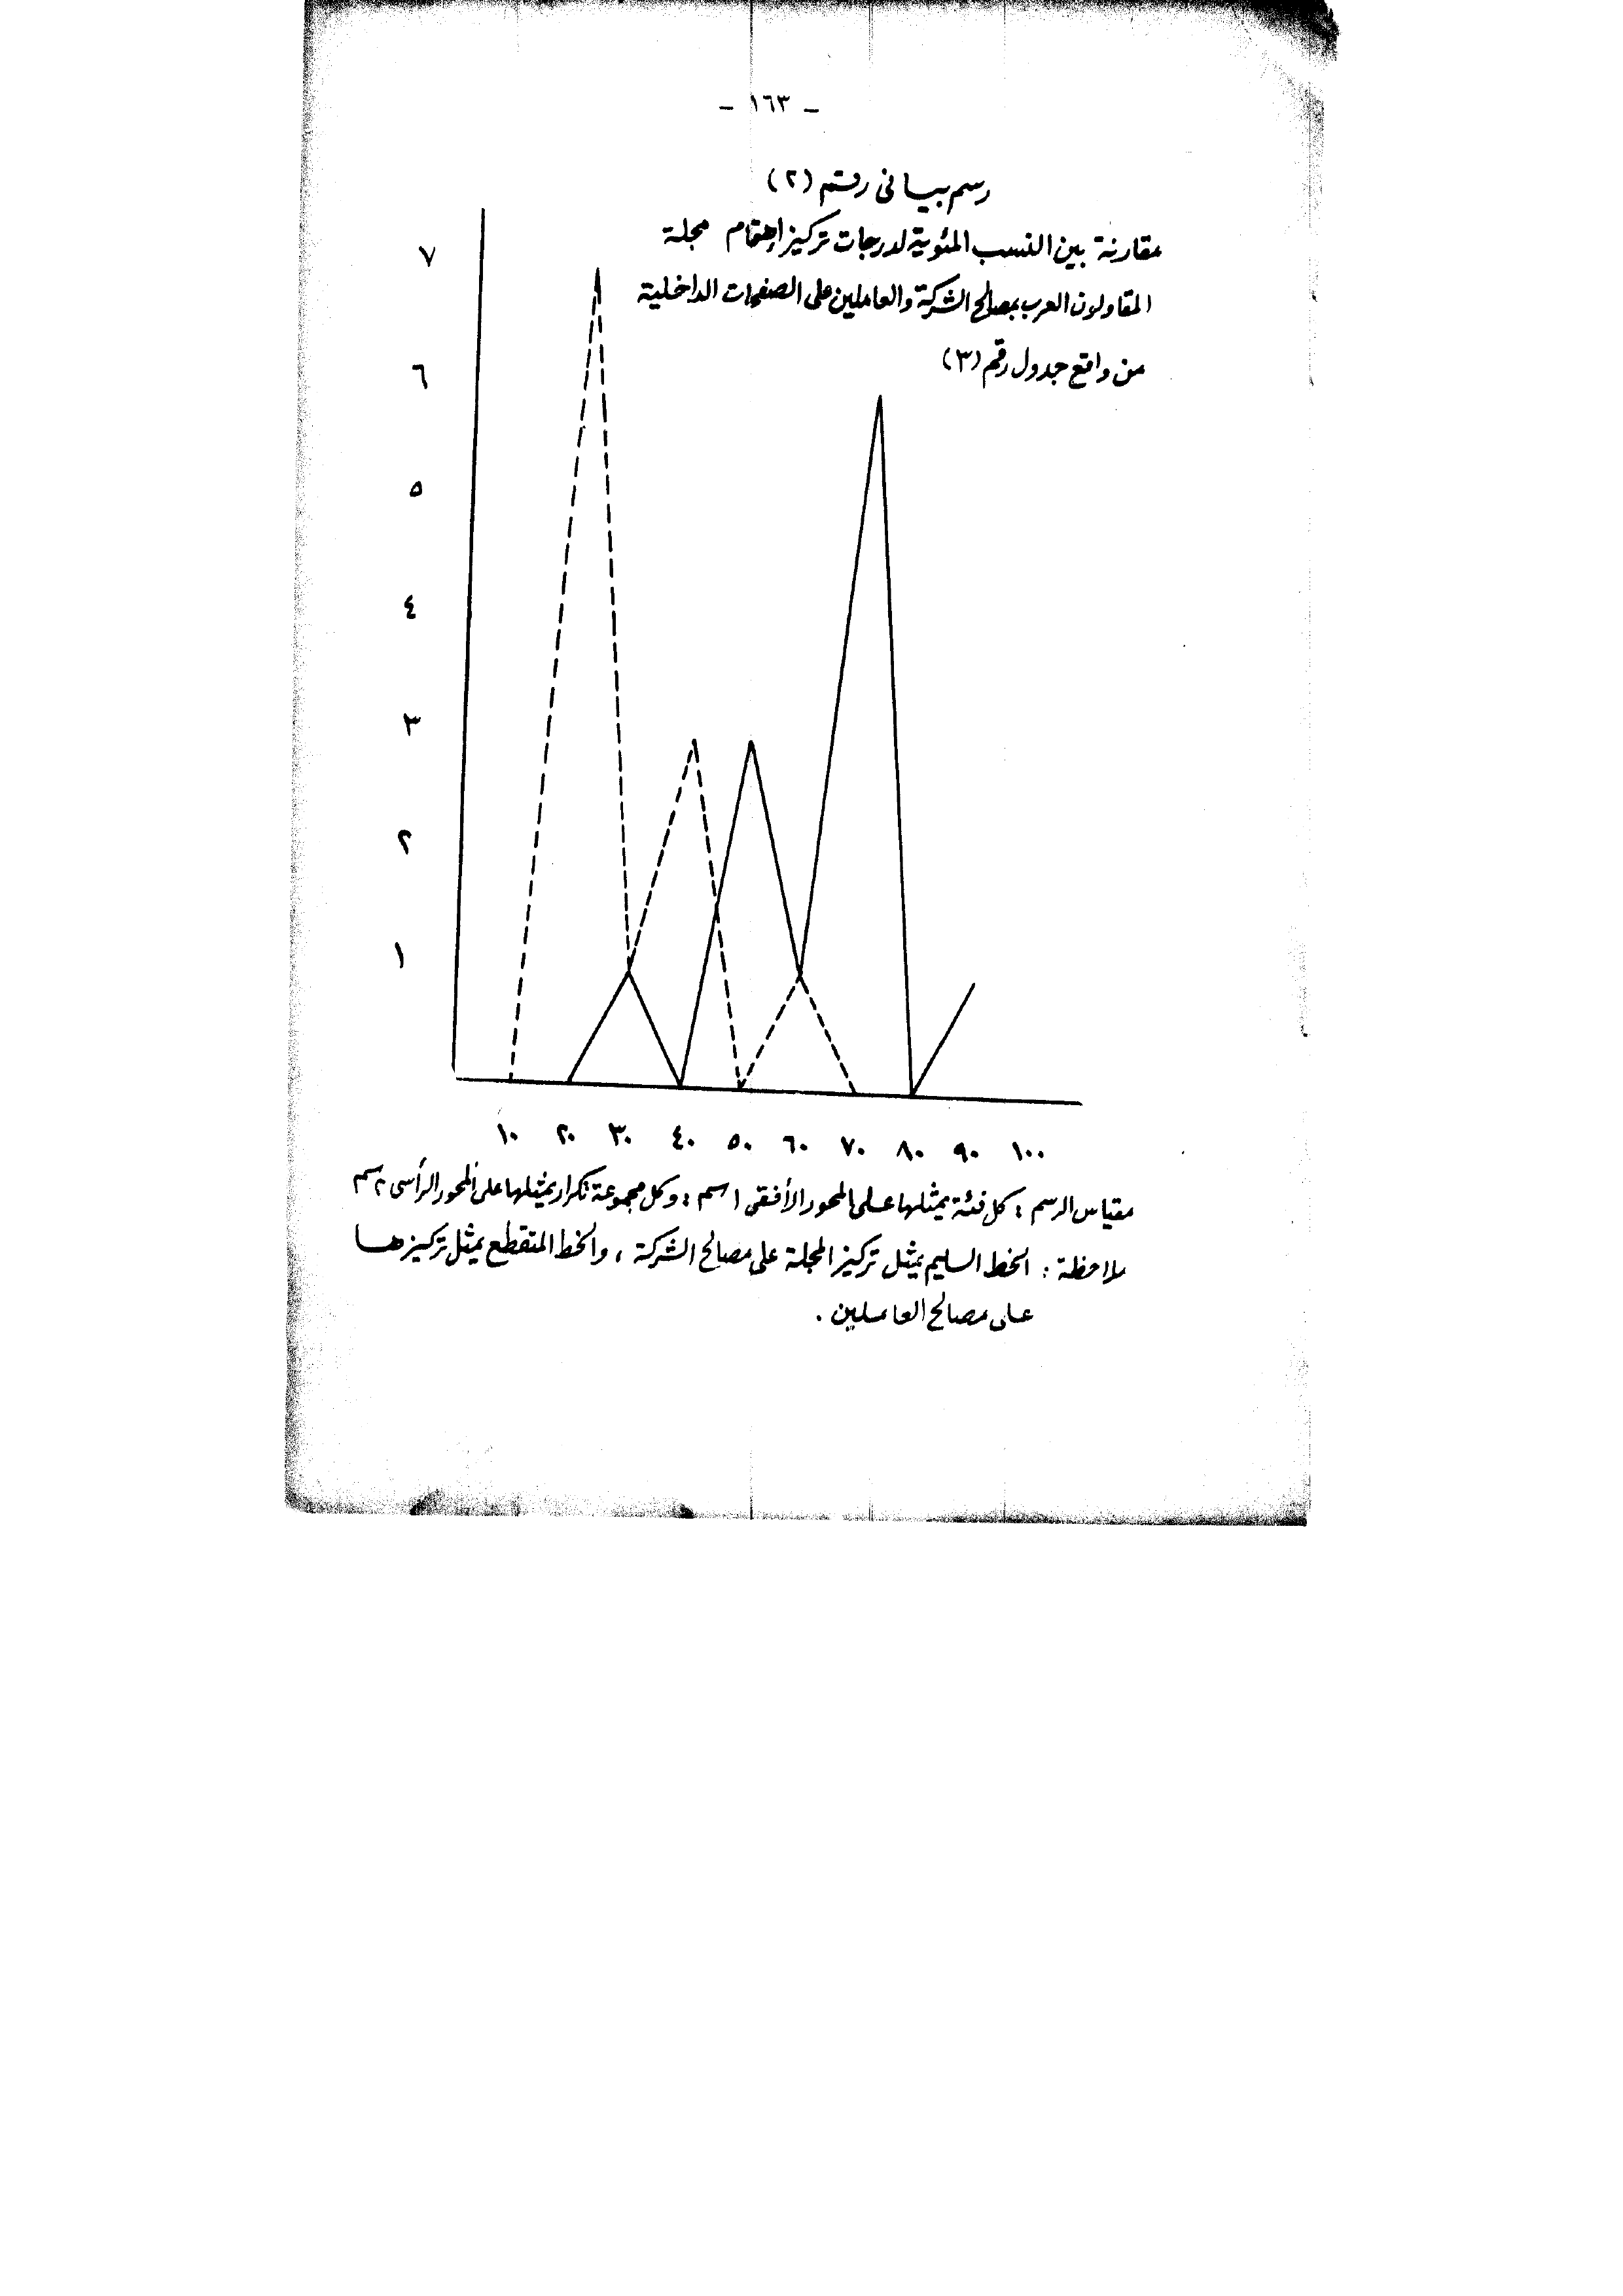 - ١٦٣ -
رسم بيانى رقم (٢)
مقارنة بين النسب المئوية لدرجات تركيز إهتمام مجلة
المقاولون العرب بمصالح الشركة والعاملين على الصفحات الداخلية
من واقع جدول رقم (٣)
٧
٦
٥
٤
٣
٢
١
١٠ ٢٠ ٣٠ ٤٠ ٥٠ ٦٠ ٧٠ ٨٠ ٩٠ ١٠٠
مقياس الرسم : كل فئة يمثلها على المحور الأفقى ١ سم : وكل مجموعة تكرار يمثلها على المحور الرأسى ٢ سم
ملاحظة : الخط السليم يمثل تركيز المجلة على مصالح الشركة ، والخط المتقطع يمثل تركيزها
على مصالح العاملين .